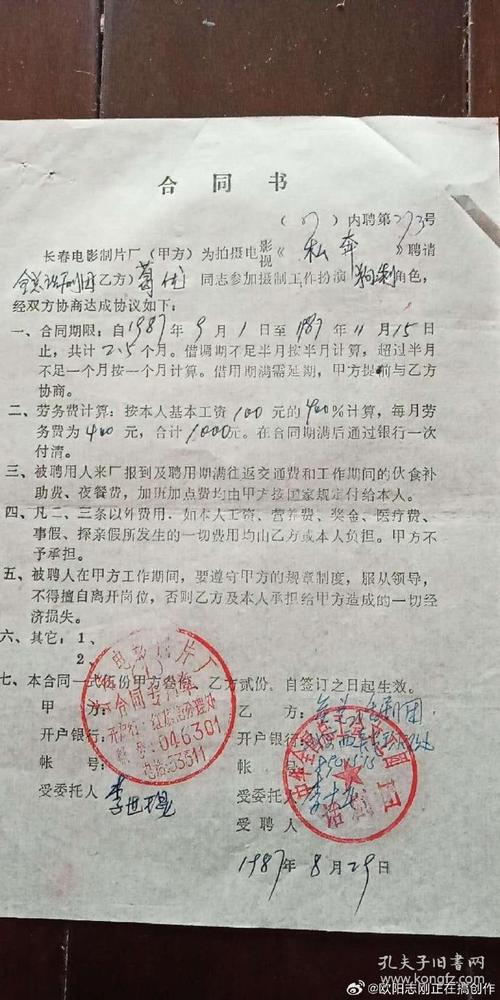 合同书
(87)内聘第273号
长春电影制片厂(甲方)为拍摄电影视《私奔》聘请
全总话剧团(乙方)葛优同志参加摄制工作扮演狗剩角色,
经双方协商达成协议如下:
一、合同期限:自1987年9月1日至1987年11月15日
止,共计2.5个月。借调期不足半月按半月计算,超过半月
不足一个月按一个月计算。借用期满需延期,甲方提前与乙方
协商。
二、劳务费计算:按本人基本工资100元的400%计算,每月劳
务费为400元,合计1000元。在合同期满后通过银行一次
付清。
三、被聘用人来厂报到及聘用期满往返交通费和工作期间的伙食补
助费、夜餐费,加班加点费均由甲方按国家规定付给本人。
四、凡二、三条以外费用.如本人工资、营养费、奖金、医疗费、
事假、探亲假所发生的一切费用均由乙方或本人负担。甲方不
予承担。
五、被聘人在甲方工作期间,要遵守甲方的规章制度,服从领导,
不得擅自离开岗位,否则乙方及本人承担给甲方造成的一切经
济损失。
六、其它:1、
2、
七、本合同一式伍份甲方叁份,乙方贰份。自签订之日起生效。
甲方:
乙方:全总话剧团
开户银行:
开户银行:
帐号:
帐号:
受委托人 李世琨
受委托人
受聘人
电影制片厂
合同专用章
046301
电话:53311
话剧团
1987年8月29日
孔夫子旧书网
@欧阳志刚正在搞创作